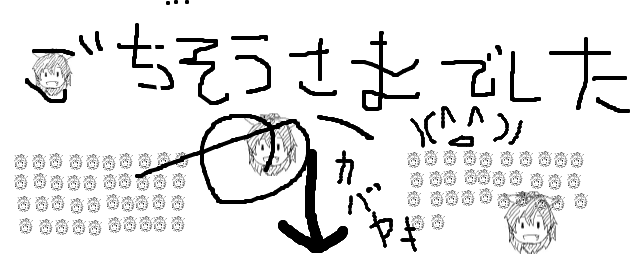 ごちそうさまでした
\(^△^)/
カバヤキ